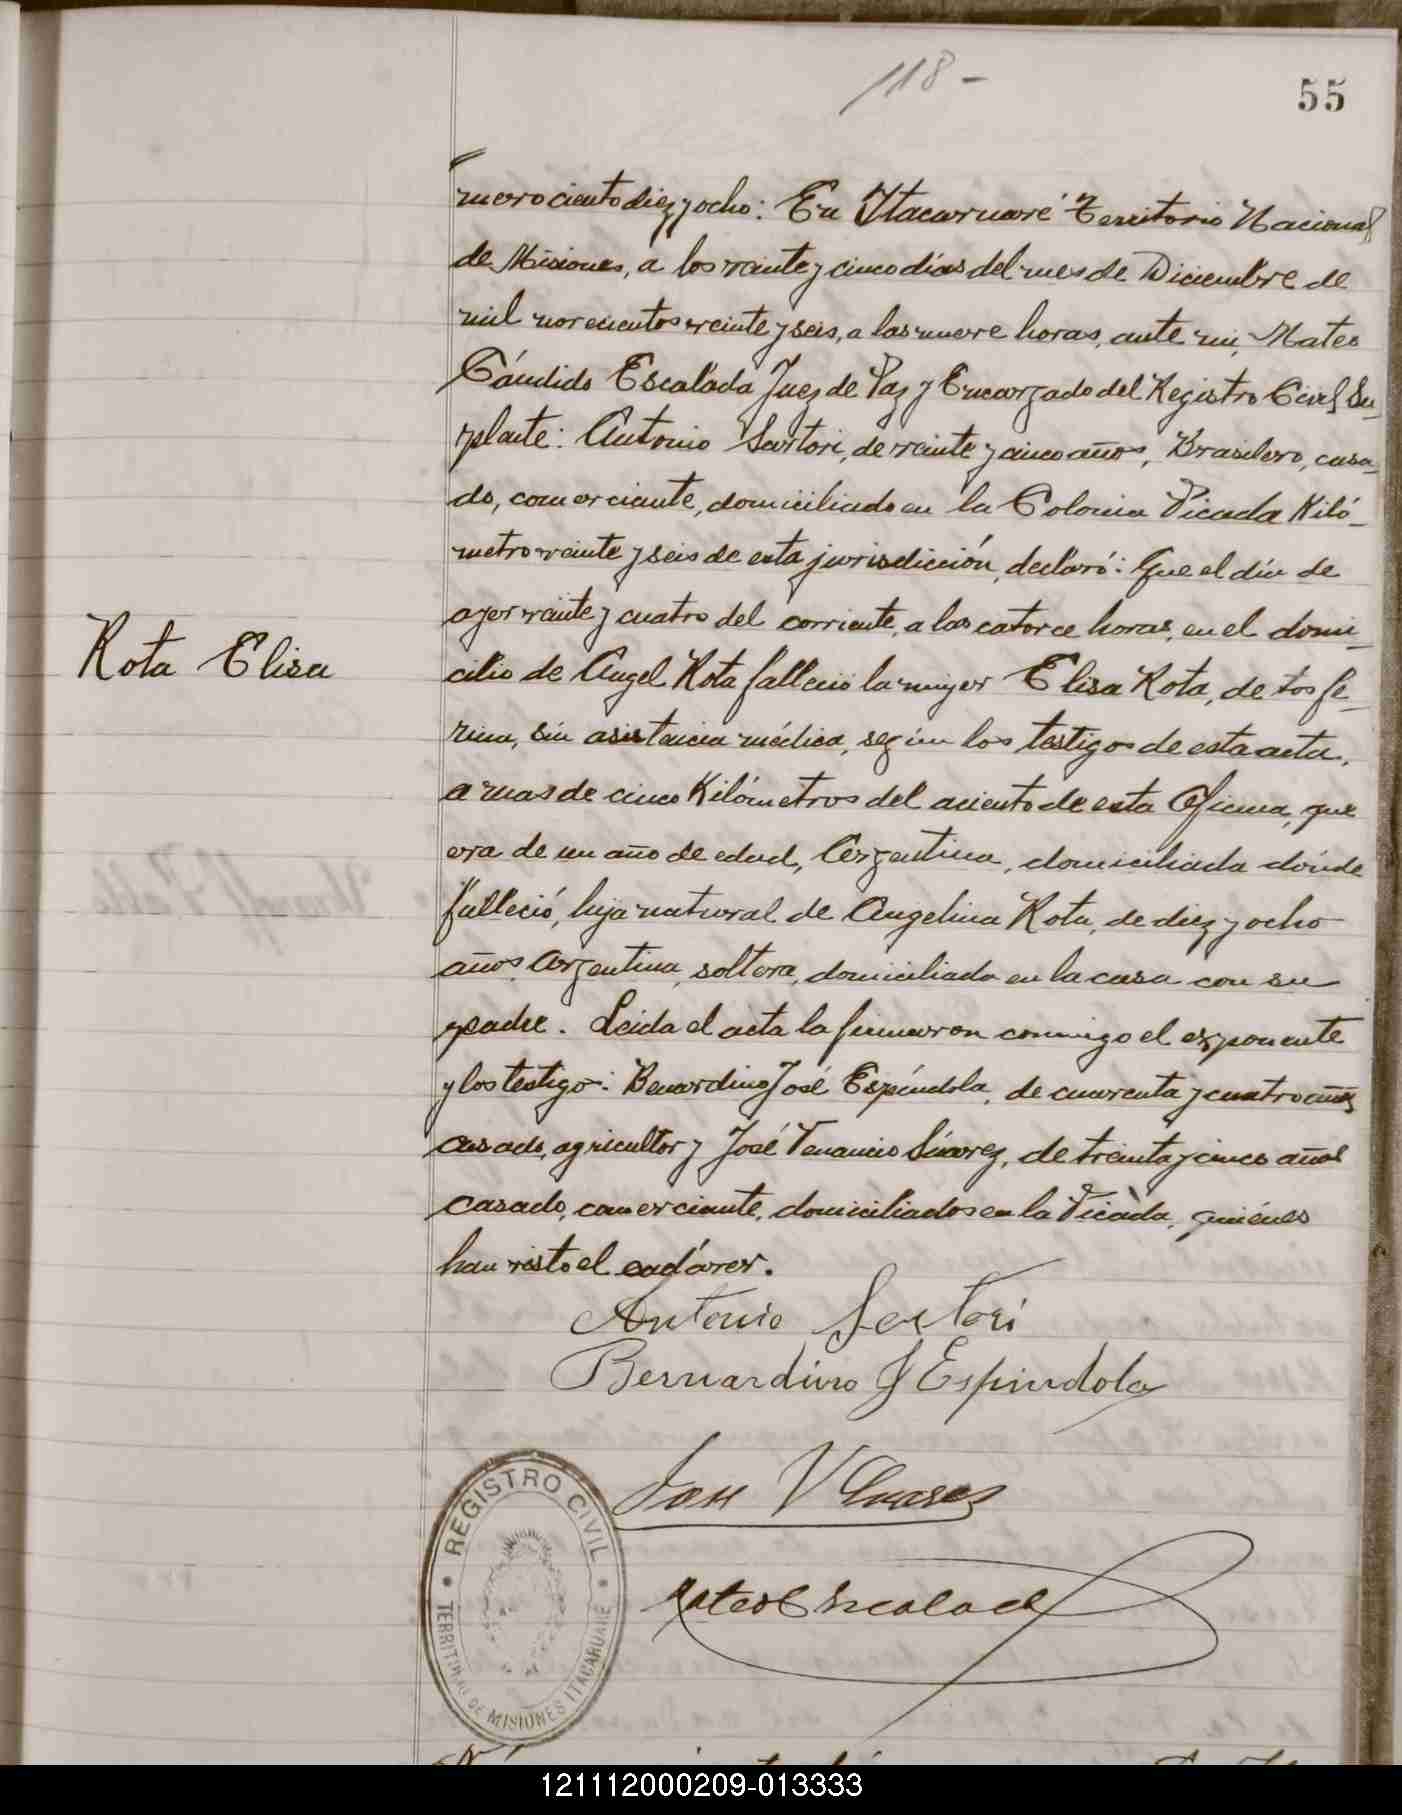 118-
55
mero ciento diez y ocho: En Itacaruaré Territorio Nacional
de Misiones, a los veinte y cinco días del mes de Diciembre de
mil novecientos veinte y seis, a las nueve horas, ante mi, Mateo
Cándido Escalada Juez de Paz y Encargado del Registro Civil, Su-
plente: Antonio Sartori, de veinte y cinco años, Brasilero, casa-
do, comerciante, domiciliado en la Colonia Picada Kiló-
metro veinte y seis de esta jurisdicción, declaró: Que el día de
ayer veinte y cuatro del corriente, a las catorce horas, en el domi-
Rota Elisa
cilio de Angel Rota falleció la mujer Elisa Rota, de tos fe-
rina, sin asistencia médica, según los testigos de esta acta,
a mas de cinco Kilómetros del aciento de esta Oficina, que
era de un año de edad, Argentina, domiciliada dónde
falleció, hija natural de Angelina Rota, de diez y ocho
años Argentina, soltera, domiciliada en la casa con su
padre. Leida el acta la firmaron conmigo el exponente
y los testigos: Bernardino José Espíndola, de cuarenta y cuatro años
casado, agricultor y José Venancio Súarez, de treinta y cinco años
casado, comerciante, domiciliados en la Picada, quiénes
han visto el cadáver.
Antonio Sartori
Bernardino J Espindola
José V Suarez
Mateo C Escalada
REGISTRO CIVIL
TERRITORIO DE MISIONES ITACARUARE
121112000209-013333